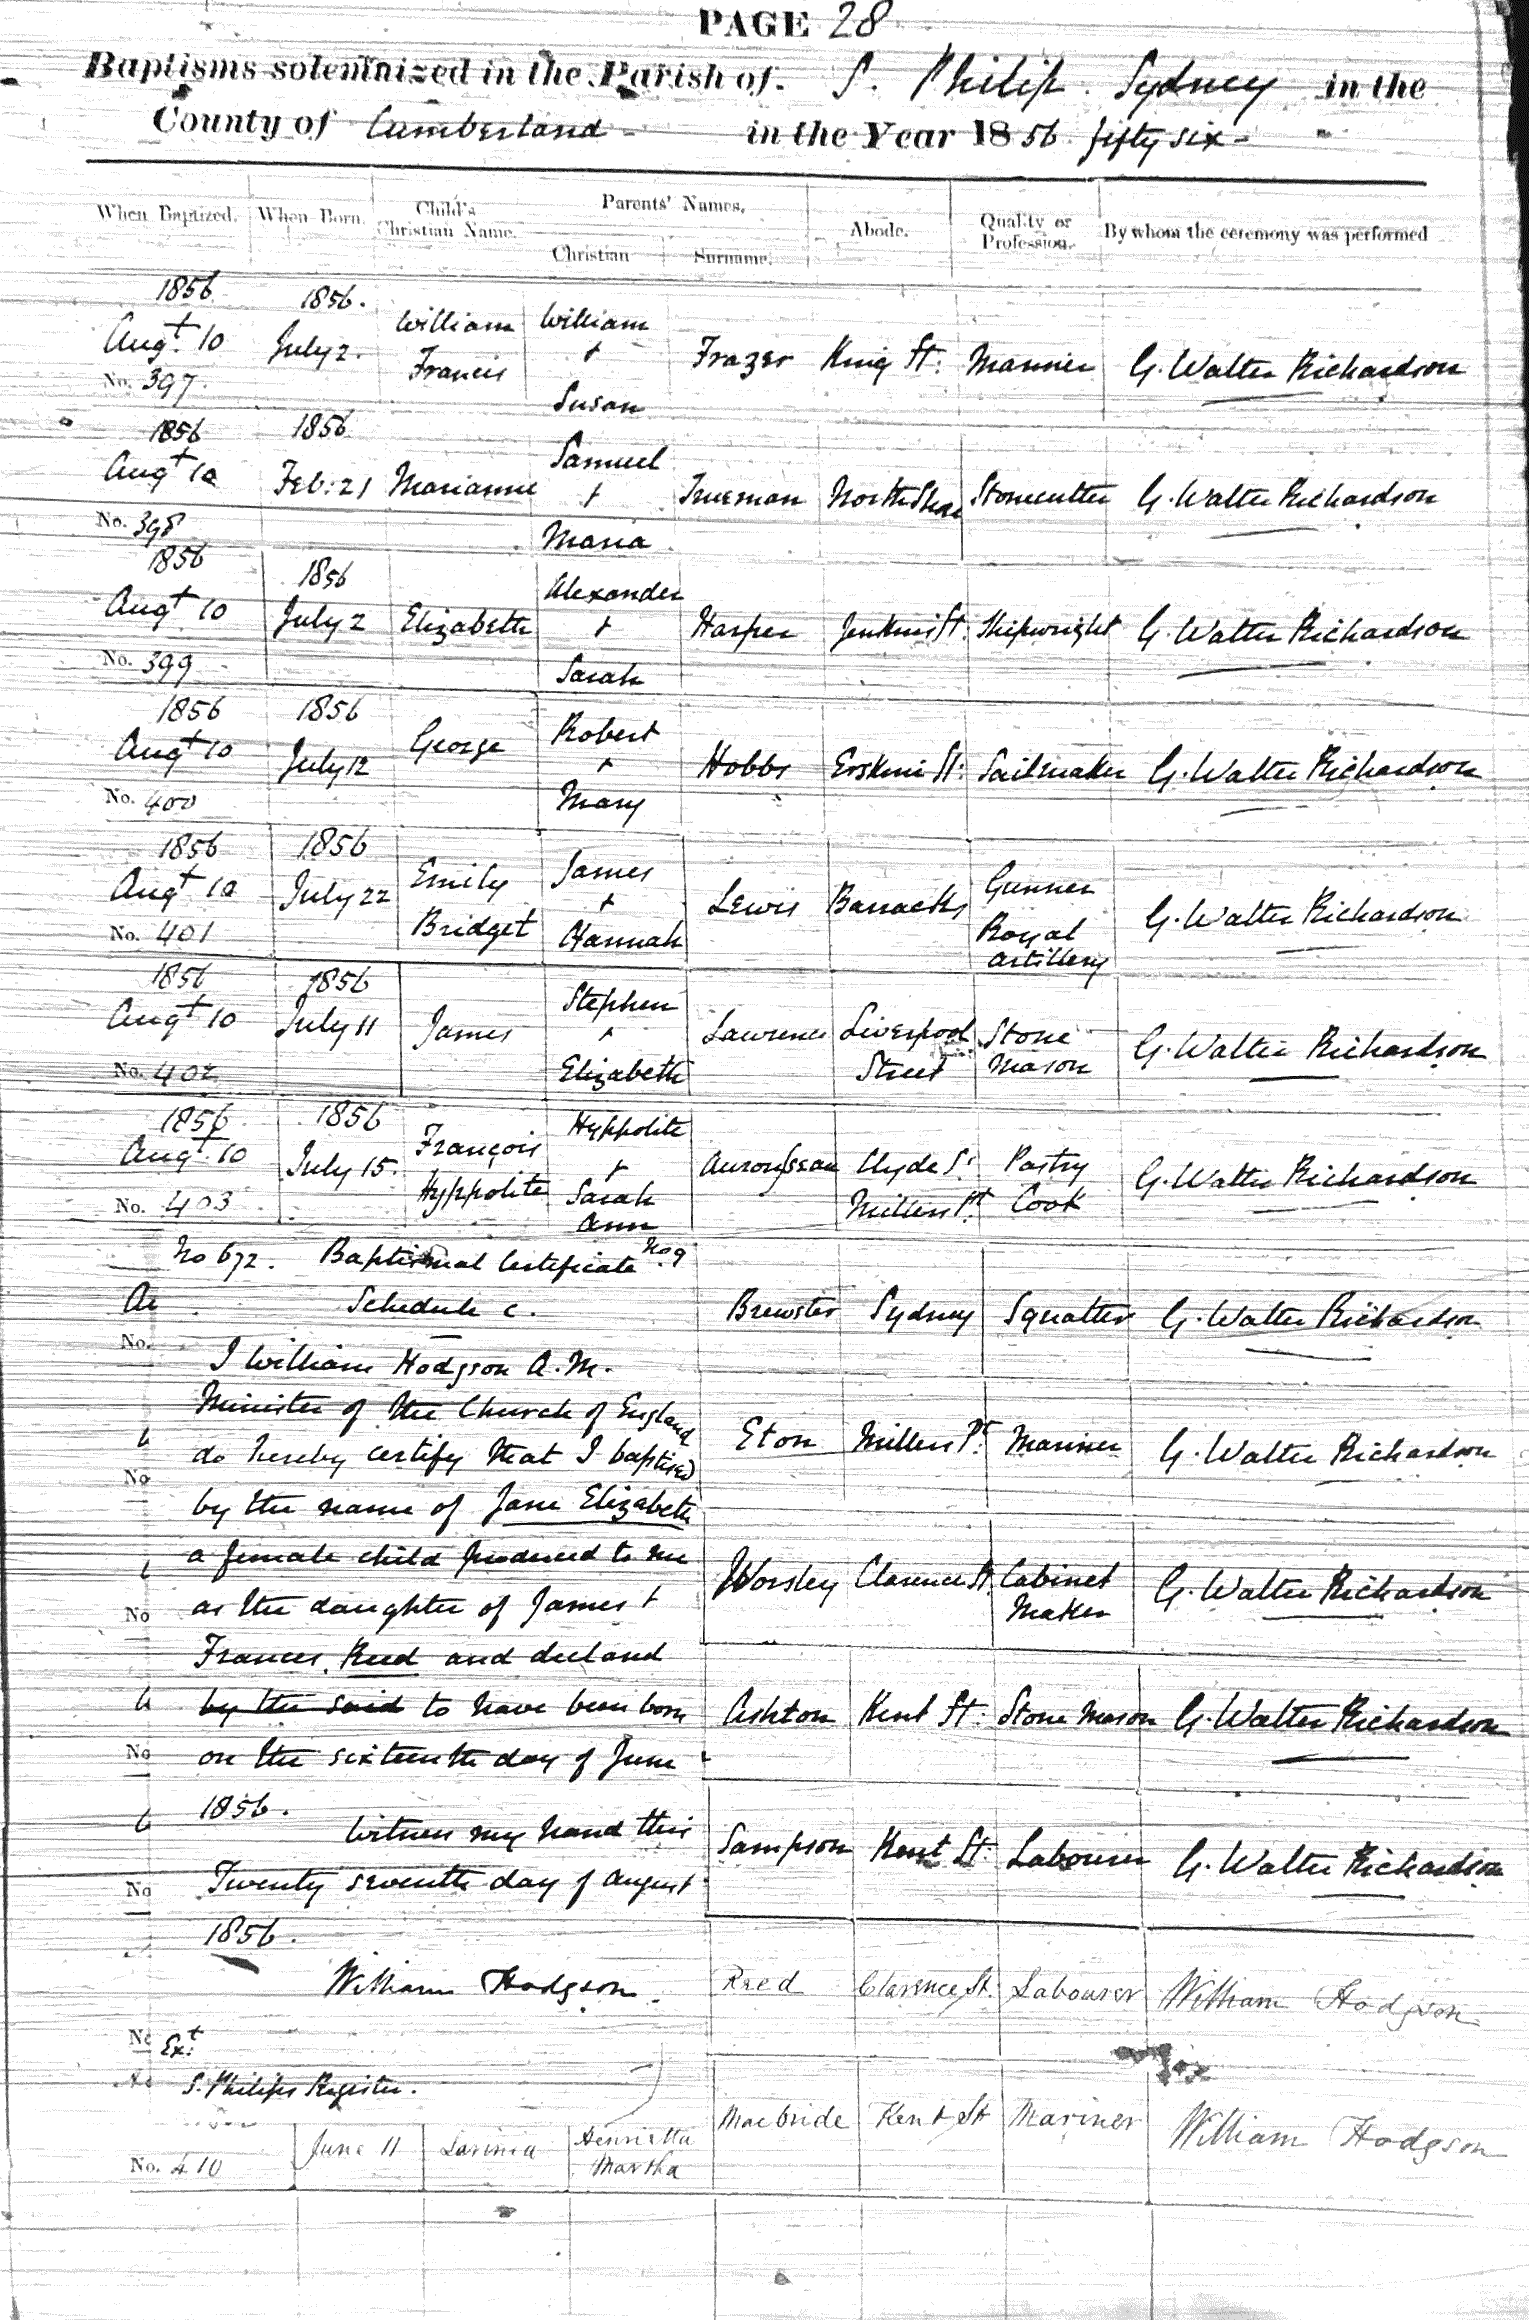 PAGE 28
Baptisms solemnized in the Parish of S. Philip Sydney in the
County of Cumberland in the Year 1856 fifty six
When Baptized. When Born. Child's Christian Name. Parents' Names. Christian Surname. Abode. Quality or Profession. By whom the ceremony was performed
1856 1856.
Augt. 10 July 2. William Francis William + Susan Frazer King St. Mariner G. Walter Richardson
No. 397.
1856 1856
Augt 10 Feb: 21 Marianne Samuel + Maria Trueman North Shore Stonecutter G. Walter Richardson
No. 398
1856 1856
Augt 10 July 2 Elizabeth Alexander + Sarah Harper Jenkins St. Shipwright G. Walter Richardson
No. 399
1856 1856
Augt 10 July 12 George Robert + Mary Hobbs Erskine St: Sailmaker G. Walter Richardson
No. 400
1856 1856
Augt 10 July 22 Emily Bridget James + Hannah Lewis Barracks Gunner Royal Artillery G. Walter Richardson
No. 401
1856 1856
Augt 10 July 11 James Stephen + Elizabeth Lawrence Liverpool Street Stone Mason G. Walter Richardson
No. 402
1856 1856
Augt. 10 July 15. François Hyppolite Hyppolite + Sarah Ann Aurousseau Clyde St Millers Pt. Pastry Cook G. Walter Richardson
No. 403
No 672. Baptismal Certificate No. 9
Schedule C.
Brewster Sydney Squatter G. Walter Richardson
No.
I William Hodgson A.M.
Minister of the Church of England
do hereby certify that I baptised
Eton Millers Pt. Mariner G. Walter Richardson
No
by the name of Jane Elizabeth
a female child produced to me
as the daughter of James +
Worsley Clarence St Cabinet Maker G. Walter Richardson
No
Frances Reed and declared
by the said to have been born
on the sixteenth day of June
Ashton Kent St: Stone Mason G. Walter Richardson
No
1856.
Witness my hand this
Twenty seventh day of August
Sampson Kent St: Labourer G. Walter Richardson
No
1856.
William Hodgson.
Reed Clarence St. Labourer William Hodgson
No
Ext.
S. Philips Register.
June 11 Lavinia Henrietta Martha Macbride Kent St Mariner William Hodgson
No. 410